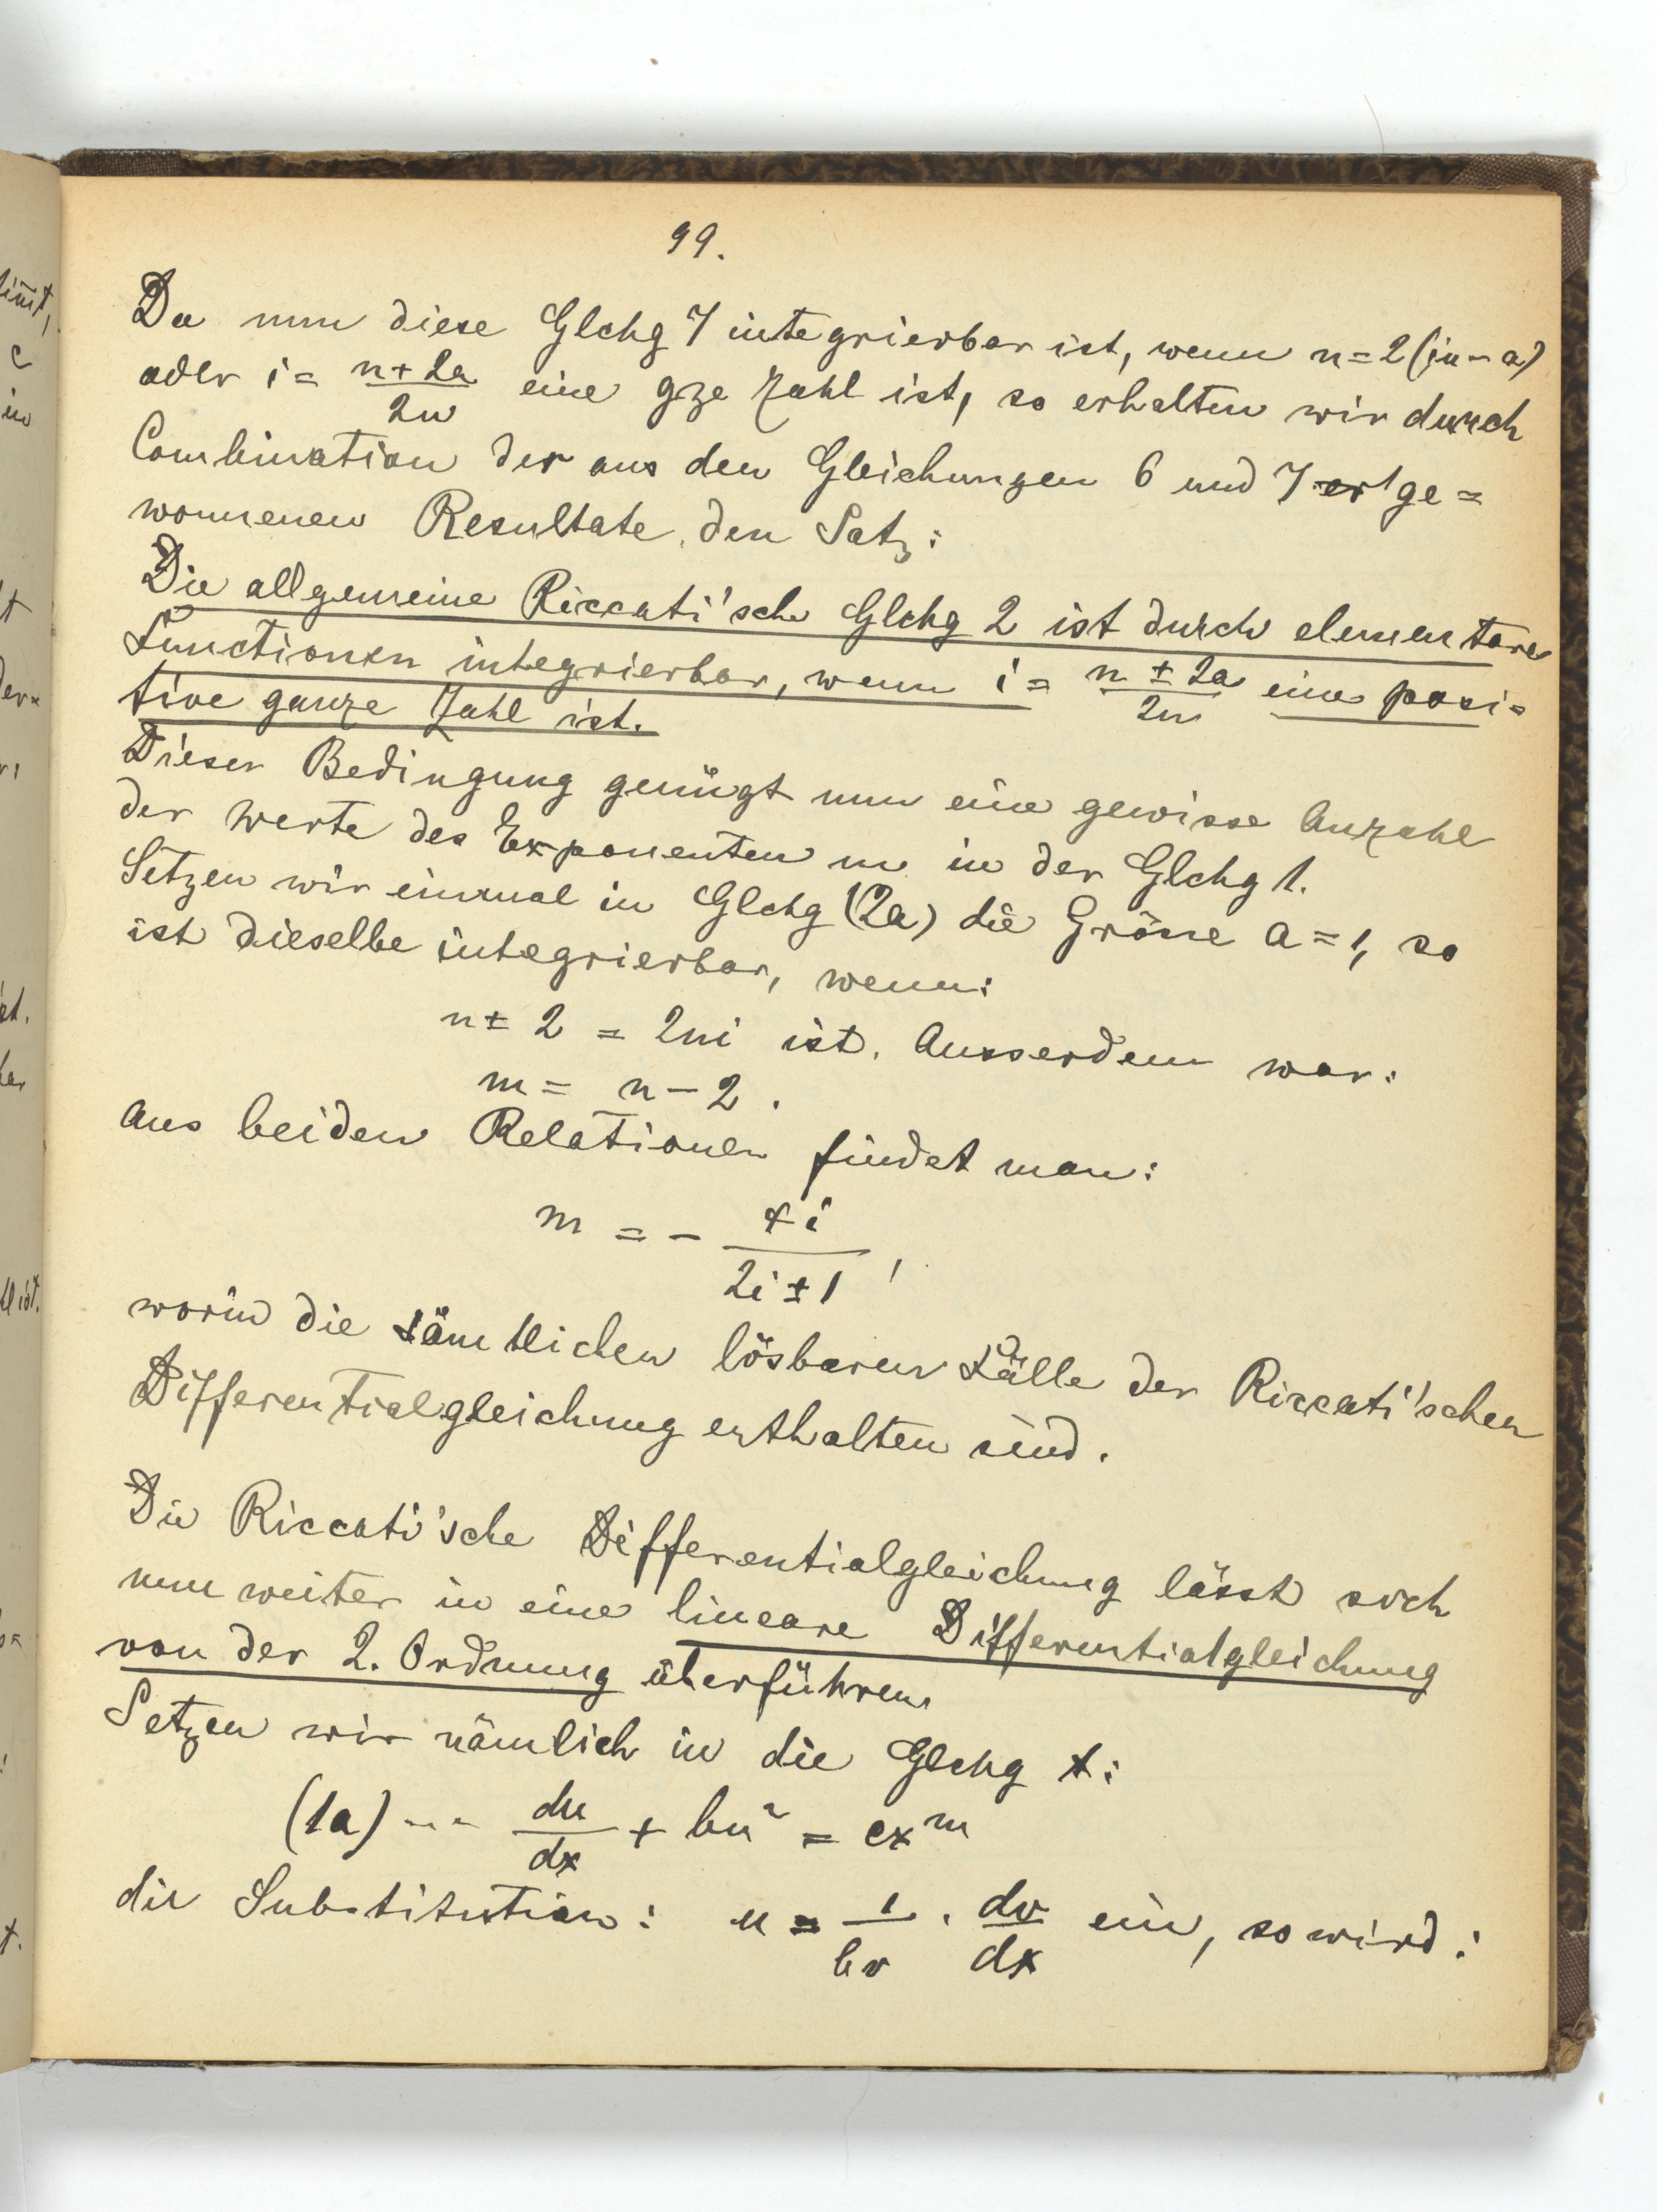 99.
Da nun diese Glchg 7 integrierbar ist, wenn n = 2(in - a)
oder i = (n + 2a)/(2n) eine gze Zahl ist, so erhalten wir durch
Combination der aus den Gleichungen 6 und 7 ge=
wonnenen Resultate, den Satz:
Die allgemeine Riccati'sche Glchg 2 ist durch elementare
Functionen integrierbar, wenn i = (n ± 2a)/(2n) eine posi=
tive ganze Zahl ist.
Dieser Bedingung genügt nun eine gewisse Anzahl
der Werte des Exponenten m in der Glchg 1.
Setzen wir einmal in Glchg (2a) die Grösse a = 1, so
ist dieselbe integrierbar, wenn:
n ± 2 = 2ni ist. Ausserdem war:
m = n - 2.
Aus beiden Relationen findet man:
m = - 4i/(2i ± 1),
worin die sämtlichen lösbaren Fälle der Riccati'schen
Differentialgleichung enthalten sind.
Die Riccati'sche Differentialgleichung lässt sich
nun weiter in eine lineare Differentialgleichung
von der 2. Ordnung überführen.
Setzen wir nämlich in die Glchg 1:
(1a) --- du/dx + bu² = cx^m
die Substitution: u = 1/(bv) · dv/dx ein, so wird: